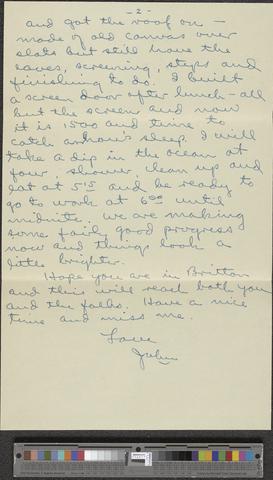 - 2 -
and got the roof on -
made of old canvas over
slats but still have the
eaves, screening, steps and
finishing to do. I built
a screen door after lunch - all
but the screen and now
it is 1500 and time to
catch an hour's sleep. I will
take a dip in the ocean at
four, shower, clean up and
eat at 5:15 and be ready to
go to work at 6:00 until
midnite. We are making
some fairly good progress
now and things look a
little brighter.
Hope you are in Britton
and this will reach both you
and the folks. Have a nice
time and miss me.
Love